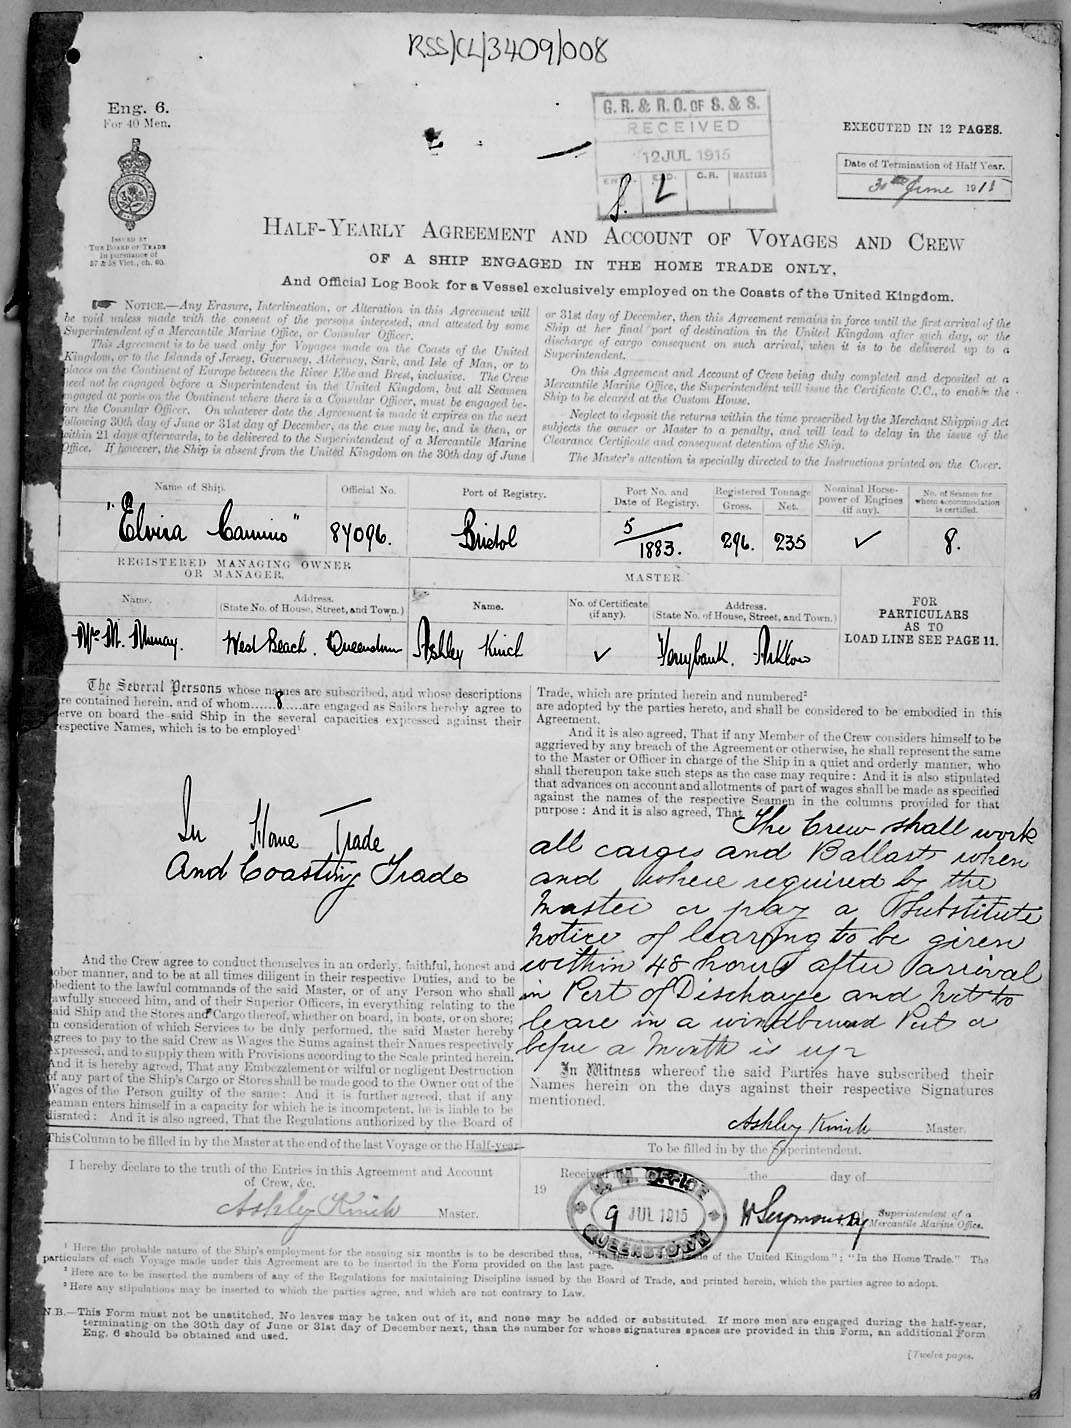 RSS/CL/3409/008
Eng. 6.
For 40 Men.
ISSUED BY
THE BOARD OF TRADE
in pursuance of
57 & 58 Vict., ch. 60.
G. R. & R. O. OF S. & S.
RECEIVED
12 JUL 1915
C.R. MASTERS
EXECUTED IN 12 PAGES.
Date of Termination of Half Year.
30th June 1915
HALF-YEARLY AGREEMENT AND ACCOUNT OF VOYAGES AND CREW
OF A SHIP ENGAGED IN THE HOME TRADE ONLY,
And Official Log Book for a Vessel exclusively employed on the Coasts of the United Kingdom.
NOTICE.—Any Erasure, Interlineation, or Alteration in this Agreement will
be void unless made with the consent of the persons interested, and attested by some
Superintendent of a Mercantile Marine Office, or Consular Officer.
This Agreement is to be used only for Voyages made on the Coasts of the United
Kingdom, or to the Islands of Jersey, Guernsey, Alderney, Sark, and Isle of Man, or to
places on the Continent of Europe between the River Elbe and Brest, inclusive. The Crew
need not be engaged before a Superintendent in the United Kingdom, but all Seamen
engaged at ports on the Continent where there is a Consular Officer, must be engaged be-
fore the Consular Officer. On whatever date the Agreement is made it expires on the next
following 30th day of June or 31st day of December, as the case may be, and is then, or
within 21 days afterwards, to be delivered to the Superintendent of a Mercantile Marine
Office. If however, the Ship is absent from the United Kingdom on the 30th day of June
or 31st day of December, then this Agreement remains in force until the first arrival of the
Ship at her final port of destination in the United Kingdom after such day, or the
discharge of cargo consequent on such arrival, when it is to be delivered up to a
Superintendent.
On this Agreement and Account of Crew being duly completed and deposited at a
Mercantile Marine Office, the Superintendent will issue the Certificate C.C., to enable the
Ship to be cleared at the Custom House.
Neglect to deposit the returns within the time prescribed by the Merchant Shipping Act
subjects the owner or Master to a penalty, and will lead to delay in the issue of the
Clearance Certificate and consequent detention of the Ship.
The Master's attention is specially directed to the Instructions printed on the Cover.
Name of Ship. Official No. Port of Registry. Port No. and Date of Registry. Registered Tonnage Gross. Net. Nominal Horse-power of Engines (if any). No. of Seamen for whom accommodation is certified.
"Elvira Camino" 87096. Bristol 5/1883. 296. 235 ✓ 8.
REGISTERED MANAGING OWNER
OR MANAGER.
MASTER.
Name. Address. (State No. of House, Street, and Town.) Name. No. of Certificate (if any). Address. (State No. of House, Street, and Town.)
Mrs M. Murray. West Beach. Queenstown Ashley Kinch ✓ Ferrybank. Arklow
FOR
PARTICULARS
AS TO
LOAD LINE SEE PAGE 11.
The Several Persons whose names are subscribed, and whose descriptions
are contained herein, and of whom......8.....are engaged as Sailors hereby agree to
serve on board the said Ship in the several capacities expressed against their
respective Names, which is to be employed¹
In Home Trade
And Coasting Trade
And the Crew agree to conduct themselves in an orderly, faithful, honest and
sober manner, and to be at all times diligent in their respective Duties, and to be
obedient to the lawful commands of the said Master, or of any Person who shall
lawfully succeed him, and of their Superior Officers, in everything relating to the
said Ship and the Stores and Cargo thereof, whether on board, in boats, or on shore;
in consideration of which Services to be duly performed, the said Master hereby
agrees to pay to the said Crew as Wages the Sums against their Names respectively
expressed, and to supply them with Provisions according to the Scale printed herein.
And it is hereby agreed, That any Embezzlement or wilful or negligent Destruction
of any part of the Ship's Cargo or Stores shall be made good to the Owner out of the
Wages of the Person guilty of the same: And it is further agreed, that if any
seaman enters himself in a capacity for which he is incompetent, he is liable to be
disrated: And it is also agreed, That the Regulations authorized by the Board of
Trade, which are printed herein and numbered²
are adopted by the parties hereto, and shall be considered to be embodied in this
Agreement.
And it is also agreed, That if any Member of the Crew considers himself to be
aggrieved by any breach of the Agreement or otherwise, he shall represent the same
to the Master or Officer in charge of the Ship in a quiet and orderly manner, who
shall thereupon take such steps as the case may require: And it is also stipulated
that advances on account and allotments of part of wages shall be made as specified
against the names of the respective Seamen in the columns provided for that
purpose: And it is also agreed, That
The Crew shall work
all cargos and Ballast when
and where required by the
Master or pay a Substitute
Notice of leaving to be given
within 48 hours after arrival
in Port of Discharge and not to
leave in a windbound Port or
before a Month is up
In Witness whereof the said Parties have subscribed their
Names herein on the days against their respective Signatures
mentioned.
Ashley Kinch Master.
This Column to be filled in by the Master at the end of the last Voyage or the Half-year
I hereby declare to the truth of the Entries in this Agreement and Account
of Crew, &c.
Ashley Kinch Master.
To be filled in by the Superintendent.
Received at the day of
19
M. M. OFFICE
9 JUL 1915
QUEENSTOWN
W Seymour Superintendent of a
Mercantile Marine Office.
¹ Here the probable nature of the Ship's employment for the ensuing six months is to be described thus, "In the of the United Kingdom"; "In the Home Trade." The
particulars of each Voyage made under this Agreement are to be inserted in the Form provided on the last page.
² Here are to be inserted the numbers of any of the Regulations for maintaining Discipline issued by the Board of Trade, and printed herein, which the parties agree to adopt.
³ Here any stipulations may be inserted to which the parties agree, and which are not contrary to Law.
N.B.—This Form must not be unstitched. No leaves may be taken out of it, and none may be added or substituted. If more men are engaged during the half-year,
terminating on the 30th day of June or 31st day of December next, than the number for whose signatures spaces are provided in this Form, an additional Form
Eng. 6 should be obtained and used.
[Twelve pages.